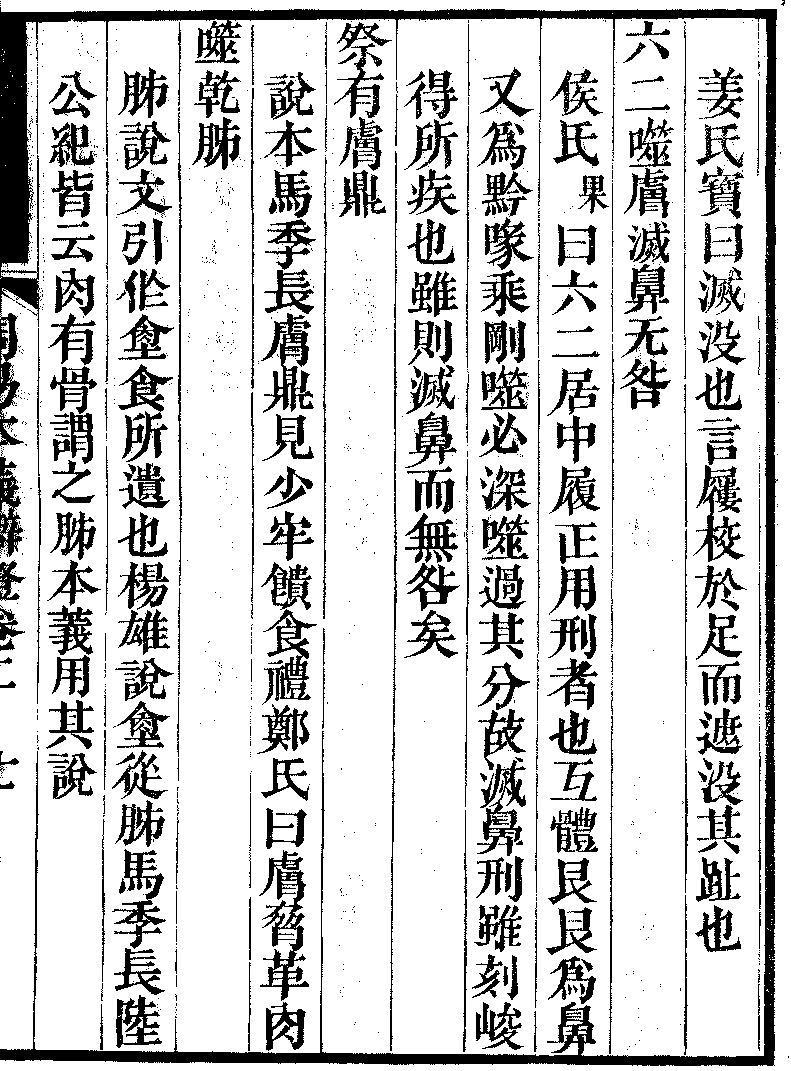 姜氏寶曰滅没也言屨校於足而遮没其趾也
六二噬膚滅鼻无咎
侯氏果曰六二居中履正用刑者也互體艮艮爲鼻
又爲黔喙乘剛噬必深噬過其分故滅鼻刑雖刻峻
得所疾也雖則滅鼻而無咎矣
祭有膚鼎
說本馬季長膚鼎見少牢饋食禮鄭氏曰膚脅革肉
噬乾胏
胏說文引作㿿食所遺也楊雄說㿿從胏馬季長陸
公紀皆云肉有骨謂之胏本義用其說
周易本義辯證卷二